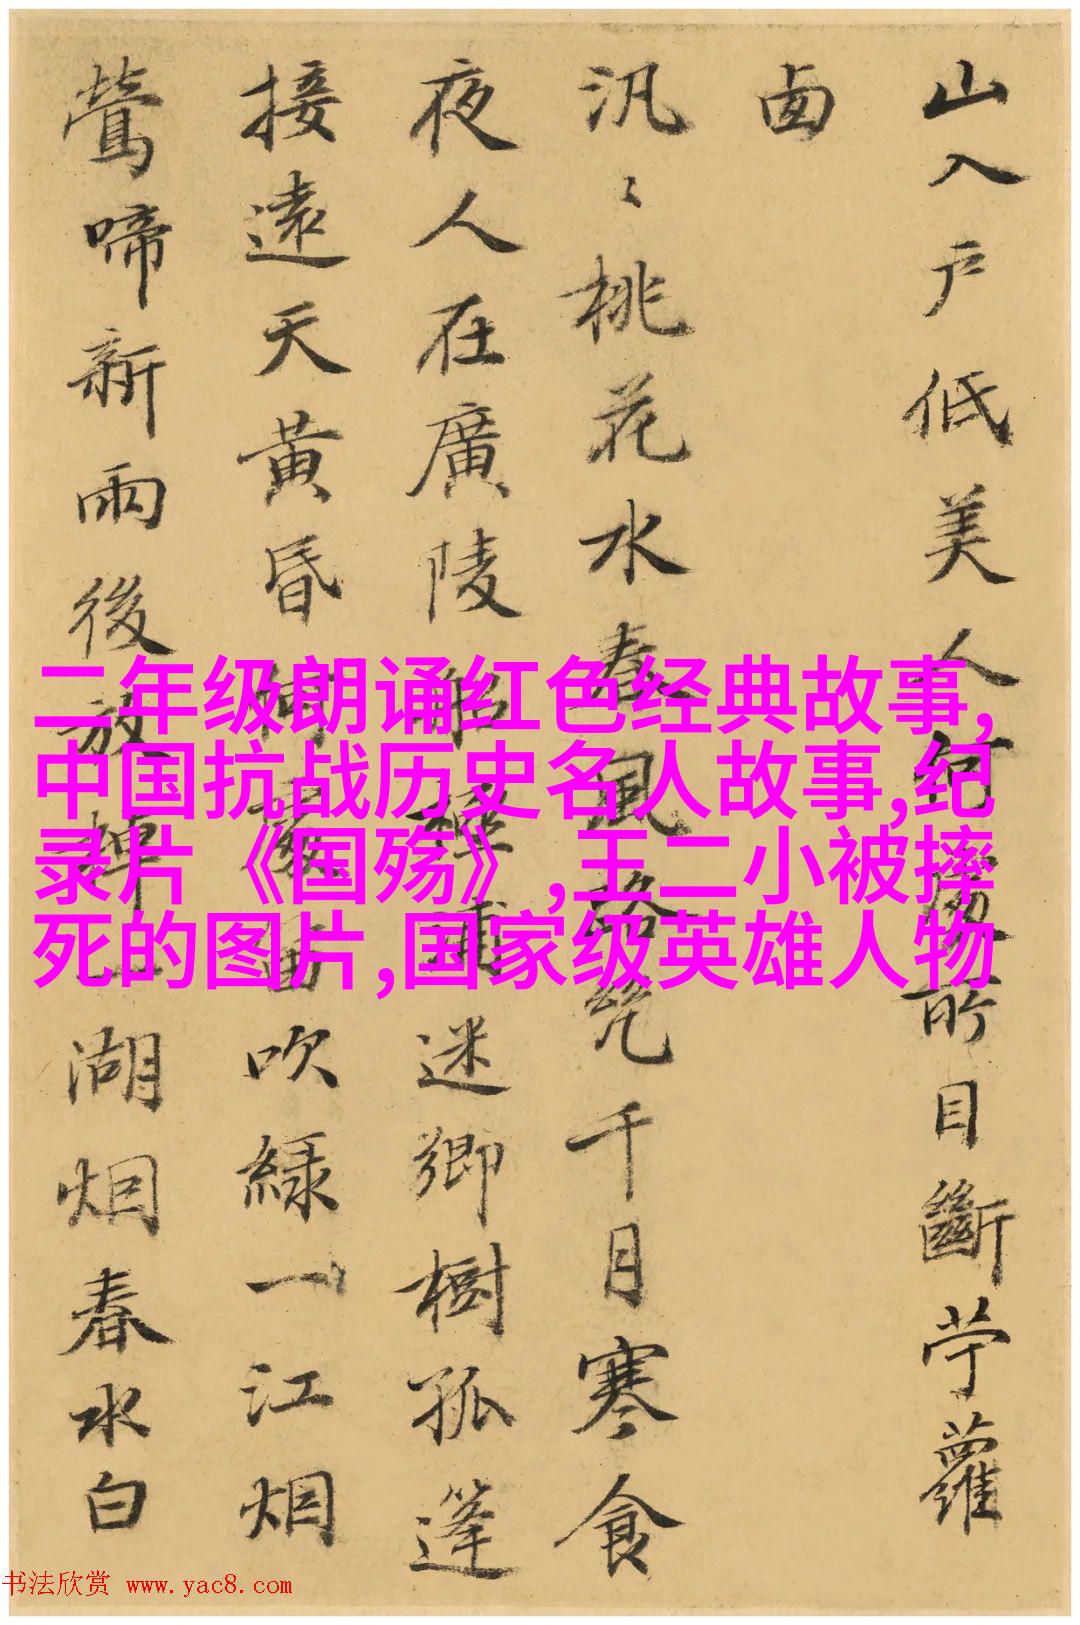 山入户低美人何處所目斷苧蘿
西
汎〻桃花水春風路千月寒食
夜人在廣陵船極浦迷鄉樹孤篷
接遠天黄昏何處笛吹綠一江烟
鶯啼新雨後放棹一湖烟春水白
二年级朗诵红色经典故事,
中国抗战历史名人故事,纪
录片《国殇》,王二小被摔
死的图片,国家级英雄人物
书法欣赏 www.yac8.com